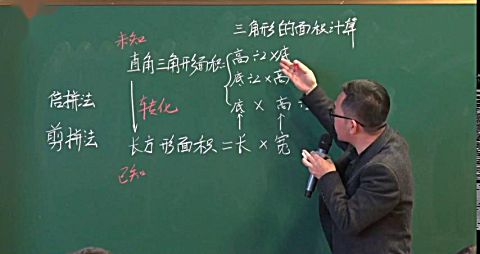 三角形的面积计算
未知
直角三角形面积
高÷2×底
底÷2×高
底×高÷
倍拼法
转化
剪拼法
长方形面积=长×宽
已知